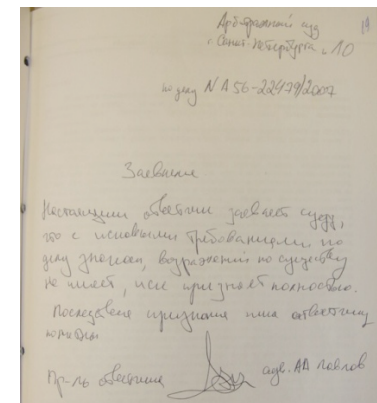 Арбитражный суд 19
г. Санкт-Петербурга и ЛО
по делу N А56-22479/2007
Заявление
Настоящим ответчик заявляет суду,
что с исковыми требованиями по
делу знаком, возражений по существу
не имеет, иск признает полностью.
Последствия признания иска ответчику
понятны
Пр-ль ответчика адв. АА Павлов